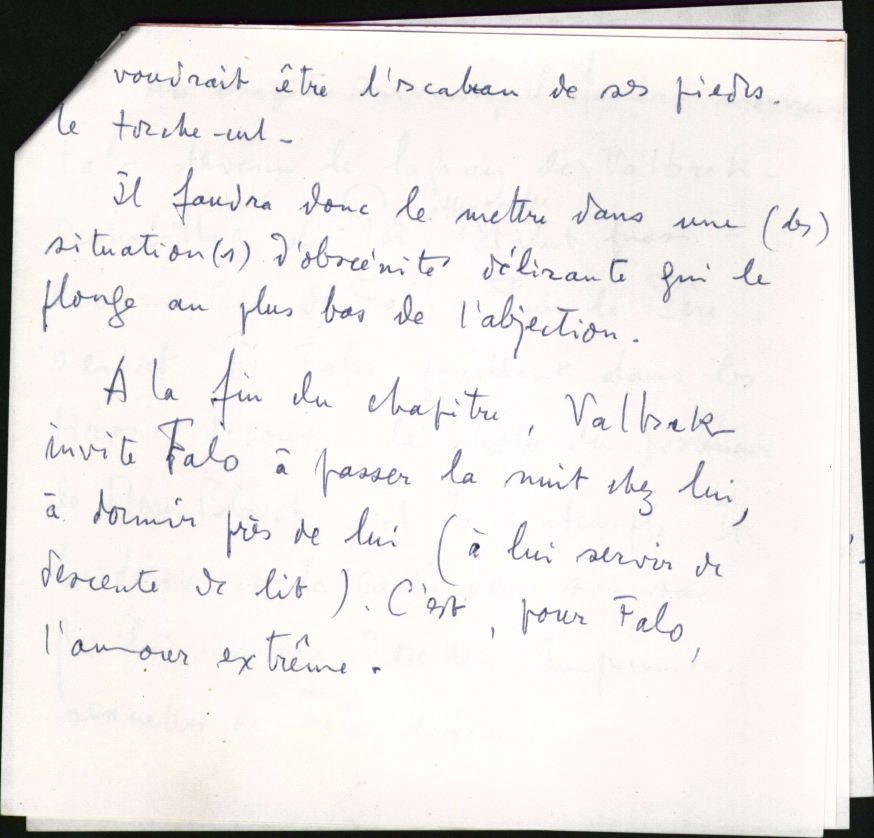 voudrait être l'escabeau de ses pieds.
le torche-cul -
Il faudra donc le mettre dans une (des)
situation(s) d'obscénité délirante qui le
plonge au plus bas de l'abjection.
A la fin du chapitre, Valbrek
invite Falo à passer la nuit chez lui,
à dormir près de lui (à lui servir de
descente de lit). C'est, pour Falo,
l'amour extrême.